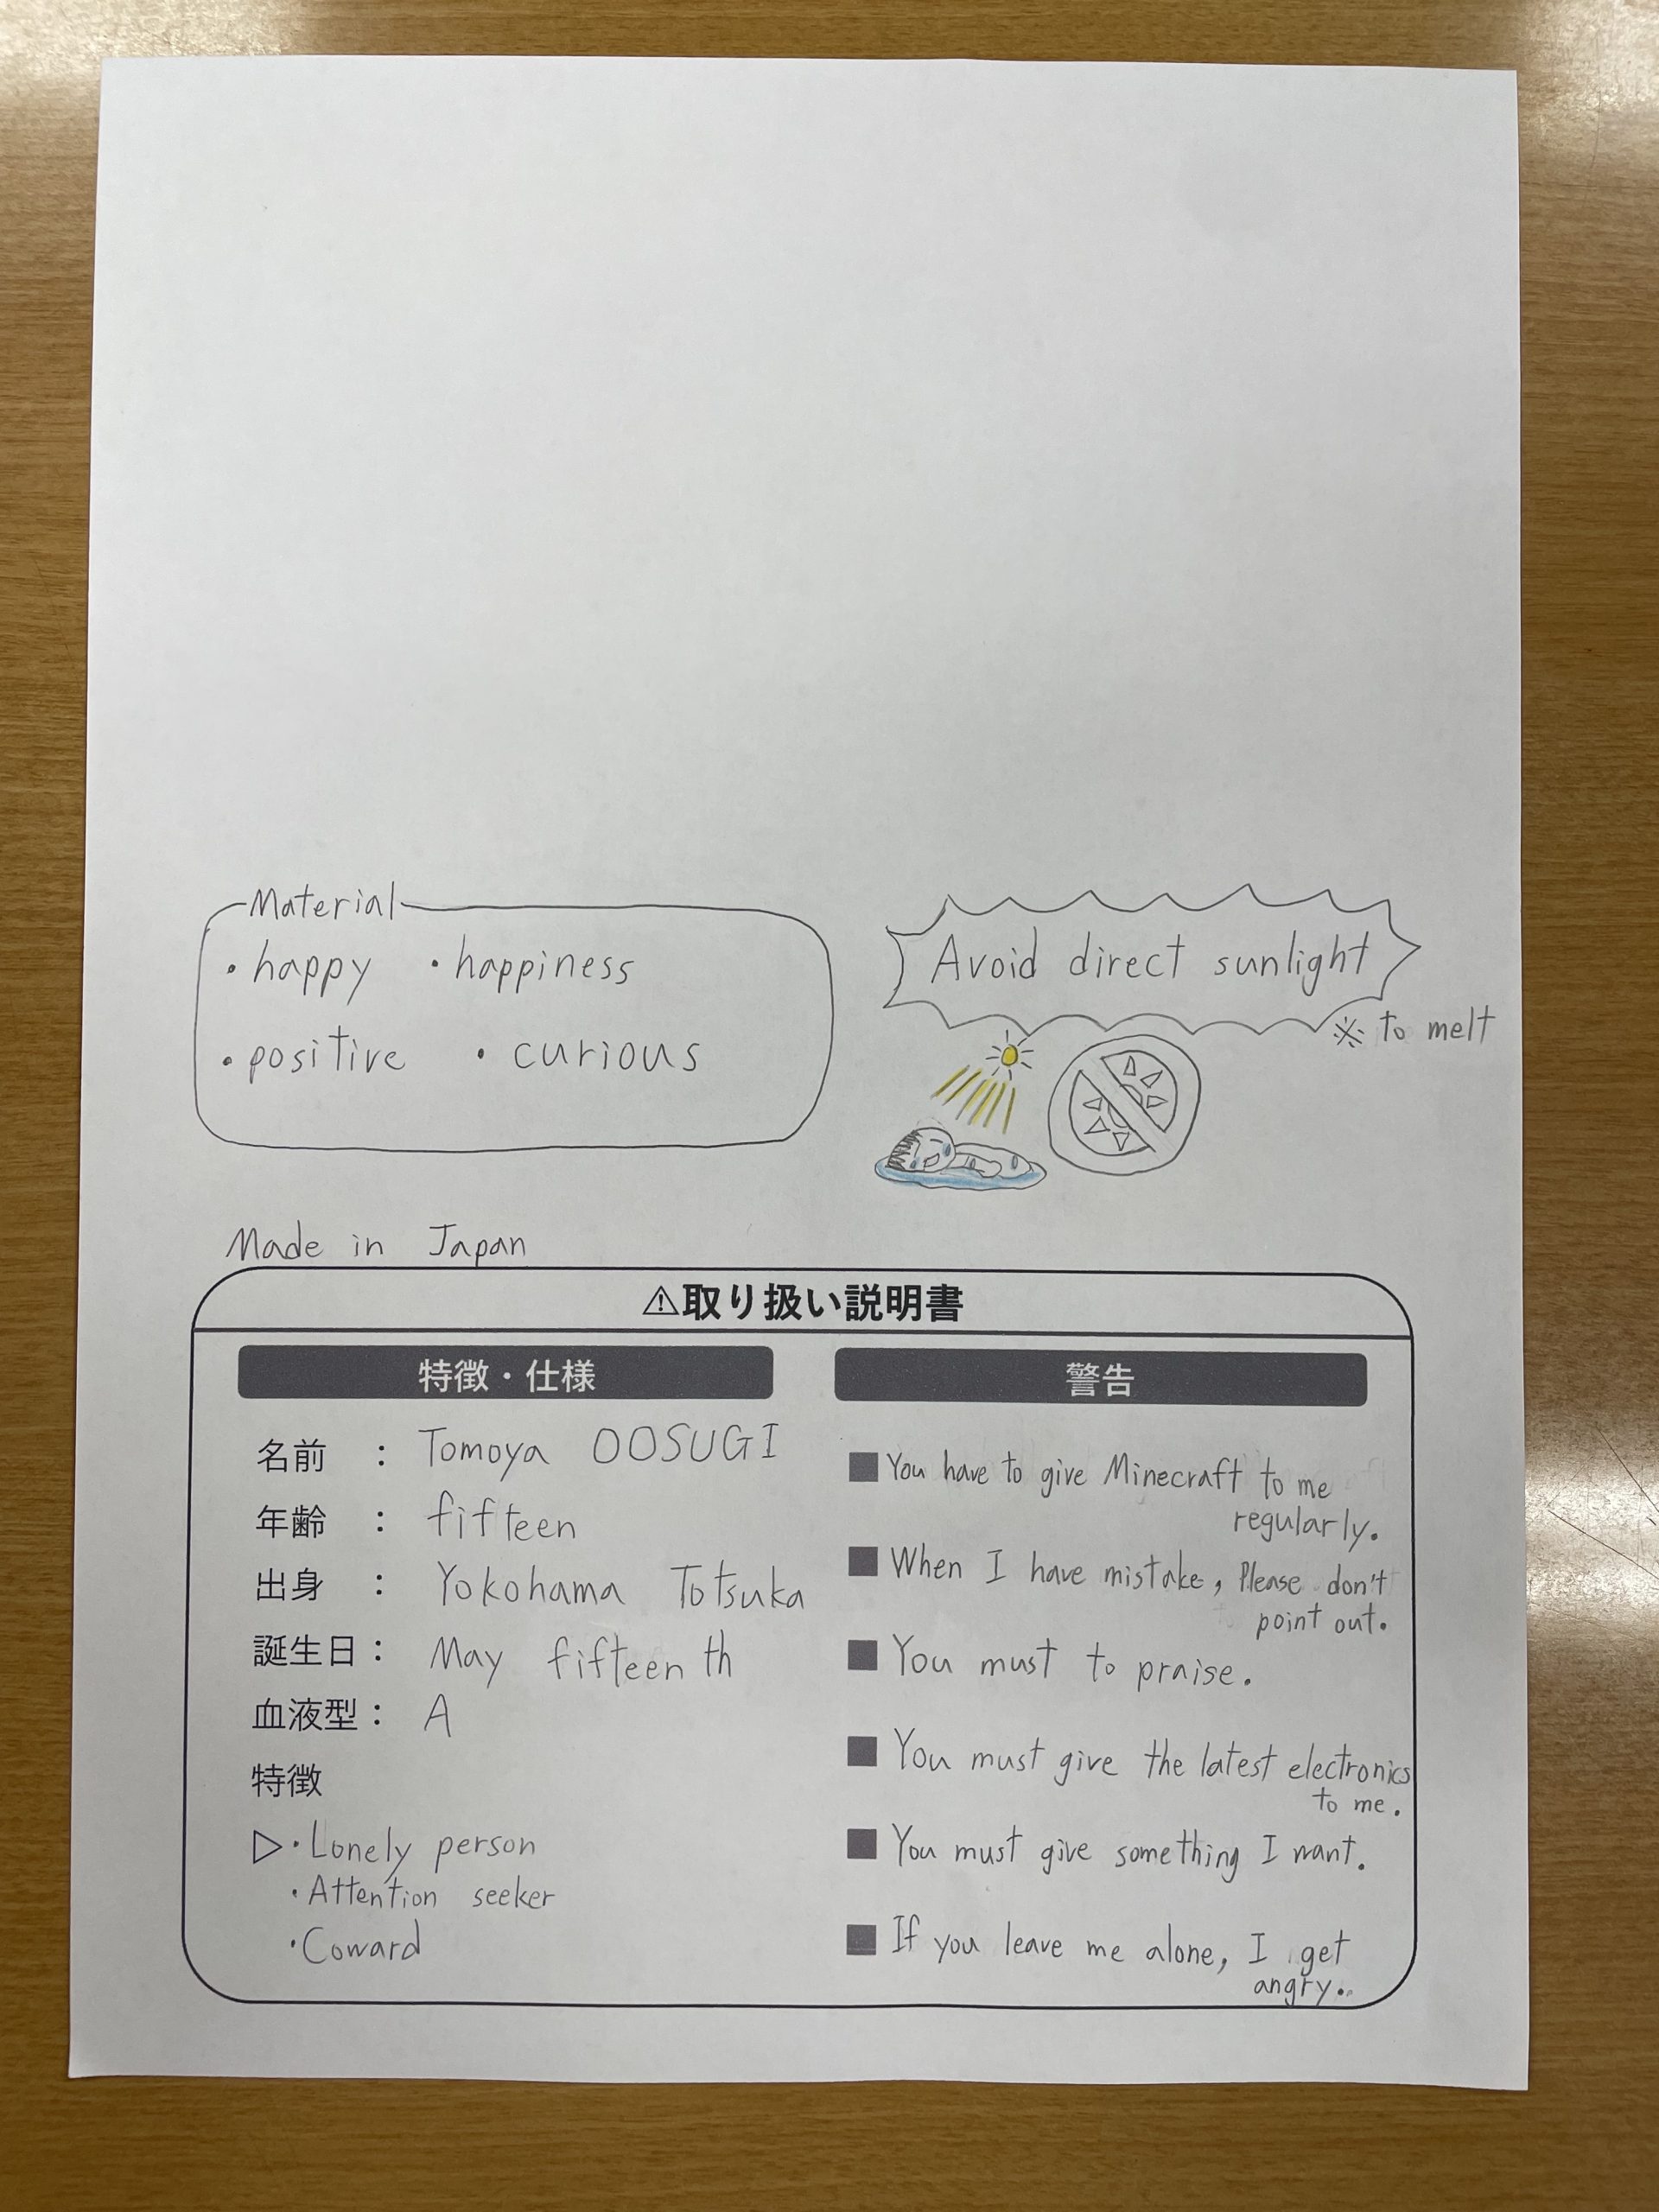 Material
・happy ・happiness
・positive ・curious
Avoid direct sunlight
※ to melt
Made in Japan
⚠取り扱い説明書
特徴・仕様
名前 : Tomoya OOSUGI
年齢 : fifteen
出身 : Yokohama Totsuka
誕生日 : May fifteenth
血液型 : A
特徴
▷・Lonely person
・Attention seeker
・Coward
警告
■You have to give Minecraft to me
regularly.
■When I have mistake, Please don't
point out.
■You must to praise.
■You must give the latest electronics
to me.
■You must give something I want.
■If you leave me alone, I get
angry..